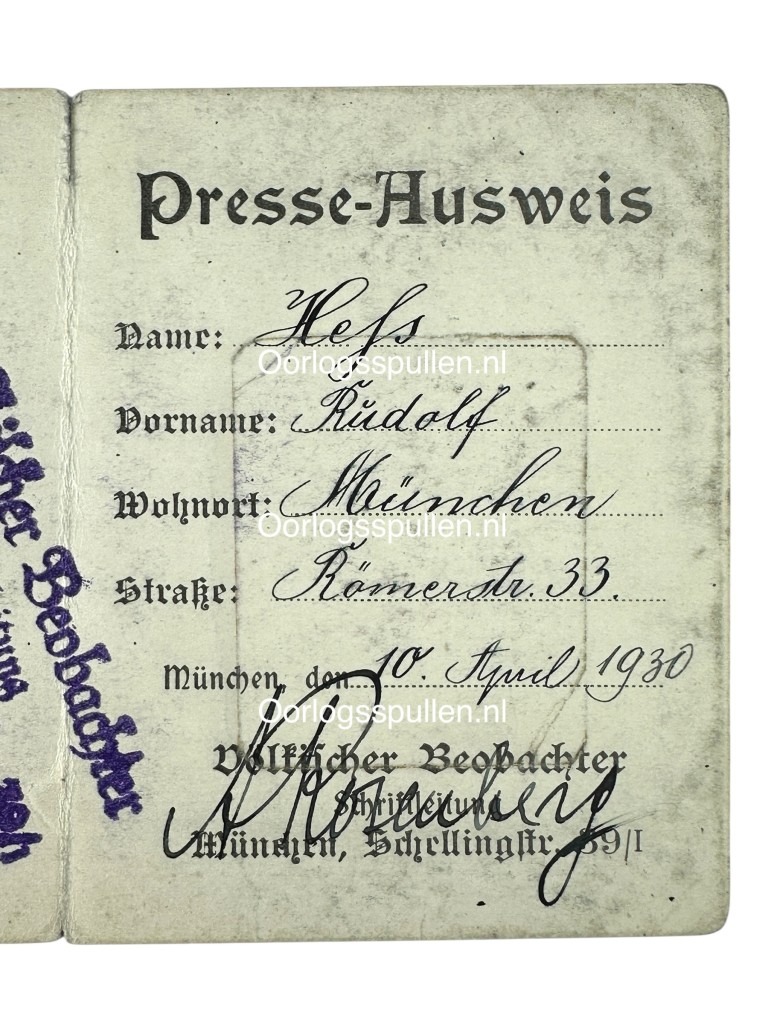 Presse-Ausweis
Name: Heß
Oorlogsspullen.nl
Vorname: Rudolf
Wohnort: München
Oorlogsspullen.nl
Straße: Römerstr. 33.
München, den 10. April 1930
Oorlogsspullen.nl
Völkischer Beobachter
Schriftleitung
A Rosenberg
München, Schellingstr. 39/I
Beobachter